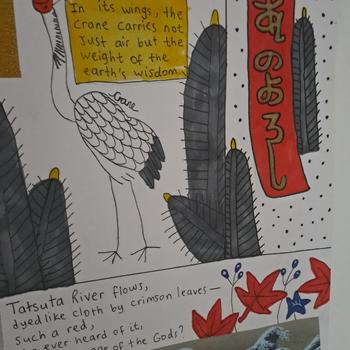 In its wings, the
crane carries not
Just air but the
weight of the
earth's wisdom.
Crane
あのよろし
Tatsuta River flows,
dyed like cloth by crimson leaves —
such a red,
ever heard of it,
of the Gods?